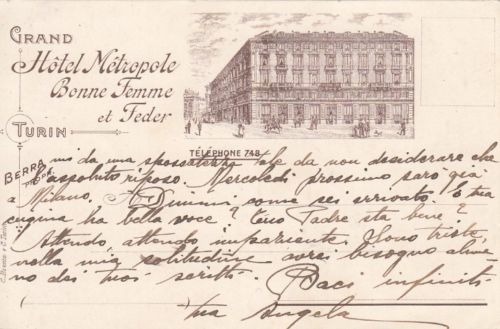 GRAND
Hôtel Métropole
Bonne Femme
et Feder
TURIN
TÉLÉPHONE 748
BERRA
PROP.
mi da una spossatezza tale da non desiderare che
l'assoluto riposo. Mercoledì prossimo sarò già
a Milano. Dimmi come sei arrivato. E tua
cugina ha bella voce? Tuo Padre sta bene?
Attendo, attendo impaziente. Sono triste
nella mia solitudine avrei bisogno alme
no dei tuoi scritti.
Baci infiniti
tua Angela